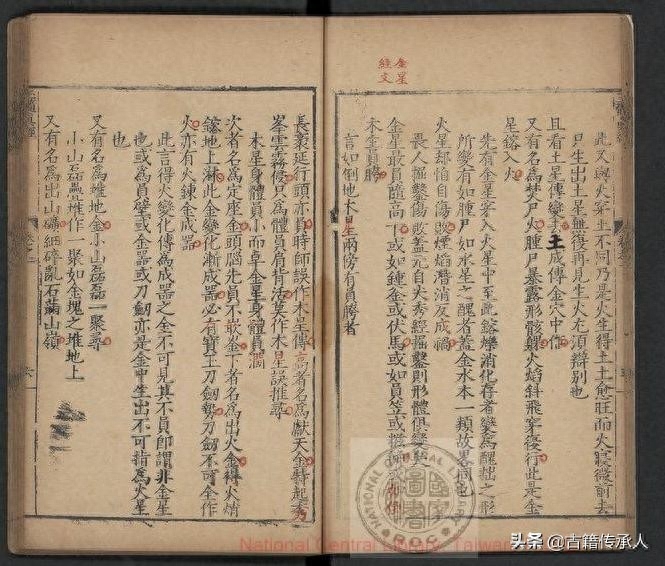 此又與火穿土不同乃是火生得土土愈旺而火寖微前去
只生出土星無復再見生火尤須辯別也
且看土星傳變去土成傳金穴中作
又有名爲焚尸火腫尸暴露形骸火焰斜飛穿復行此是金
星鎔入火
先有金星穿入火星中至此鎔爍消化存者變爲醜拙之形
所變有如腫尸如水星之醜者蓋金水本一類故畧同也
火星却怕自傷敗煙焰潛消反成禍
畏人摳鑿傷敗蓋元自夫秀經摳鑿則形體俱變矣
金星最員隨高下或如鍾釜或伏馬或如員笠或糍
木金員勝
言如倒地木星兩傍有員勝者
金星
經文
長裹延行頭亦員時師誤作木星傳高者名爲獻天金特起
峯雲霧侵只爲體員肩肯活莫作木星誤推尋
木星身體員小而卓金星身體員濶
次者名爲定座金頭腦先員不敢岑下者名爲出火金得火㷮
鎔地上淋此金變化漸成器必有寶土刀劒勢刀劒不可全作
火亦有火鍊金成器
此言得火變化傳爲成器之金不可見其不員即謂非金星
也或爲員磬或金器或刀劒亦是金中生出不可指爲火星
也
又有名爲堆地金小山磊磊一聚尋
小山磊磊堆作一聚如金塊之堆地上
又有名爲出山礦細碎亂石蒲山嶺
卷之二
六
NATIONAL CENTRAL LIBRARY
國家圖書館
ROC
National Central Library, Taiwan
头条 @古籍传承人